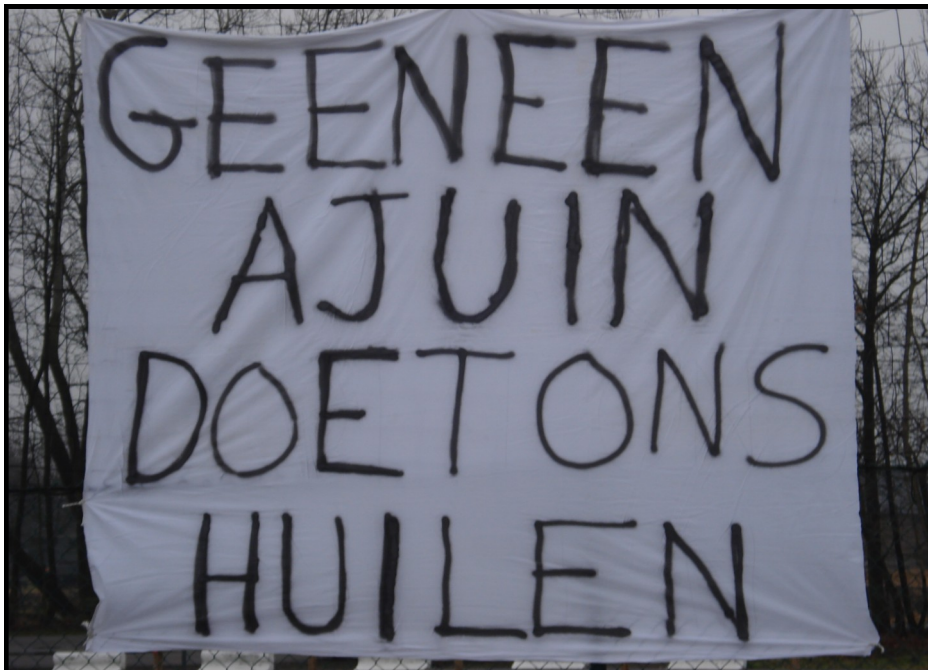 GEENEEN
AJUIN
DOET ONS
HUILEN